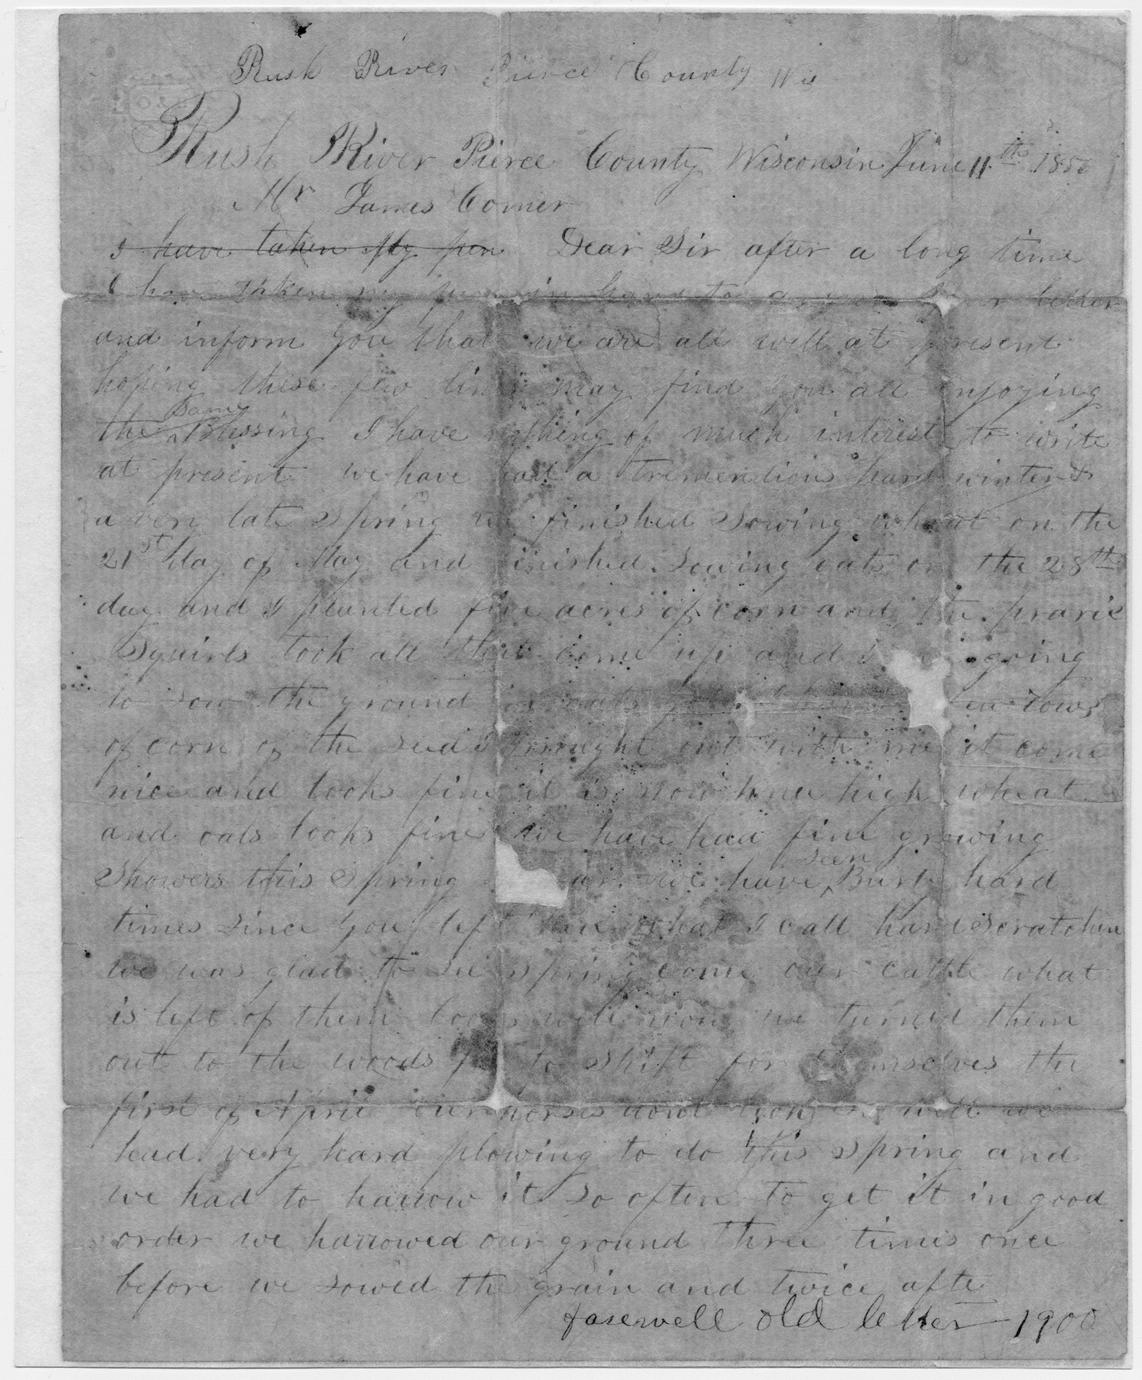 Rush River Pierce County Wis
Rush River Pierce County Wisconsin June 11th
Mr James Comer
I have taken My pen Dear Sir after a long time
I have taken my pen in hand to letter
and inform you that we are all well at present
hoping these few lines may find you all enjoying
the Same Blessing I have nothing of much interest to write
at present we have had a tremendious hard winter &
a very late Spring we finished Sowing wheat on the
21st day of May and finished Sowing oats on the 28th
day and I planted five acres of corn and the prarie
Squirls took all that come up and I going
to sow the ground in oats few rows
of corn of the seed I braught out with me it come
nice and looks fine it is now knee high wheat
and oats looks fine we have had fine growing
Showers this Spring we have seen hard
times since you left here what I call hard scratchin
we was glad to see spring come our cattle what
is left of them looks well now we turned them
out to the woods to shift for themselves the
first of April our horses dont look so well we
had very hard plowing to do this spring and
we had to harrow it so often to get it in good
order we harrowed our ground three times once
before we sowed the grain and twice afte
farewell old letter 1900